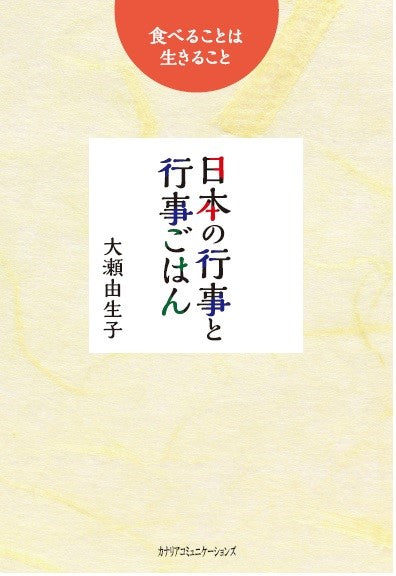 食べることは
生きること
日本の行事と
行事ごはん
大瀬由生子
カナリアコミュニケーションズ